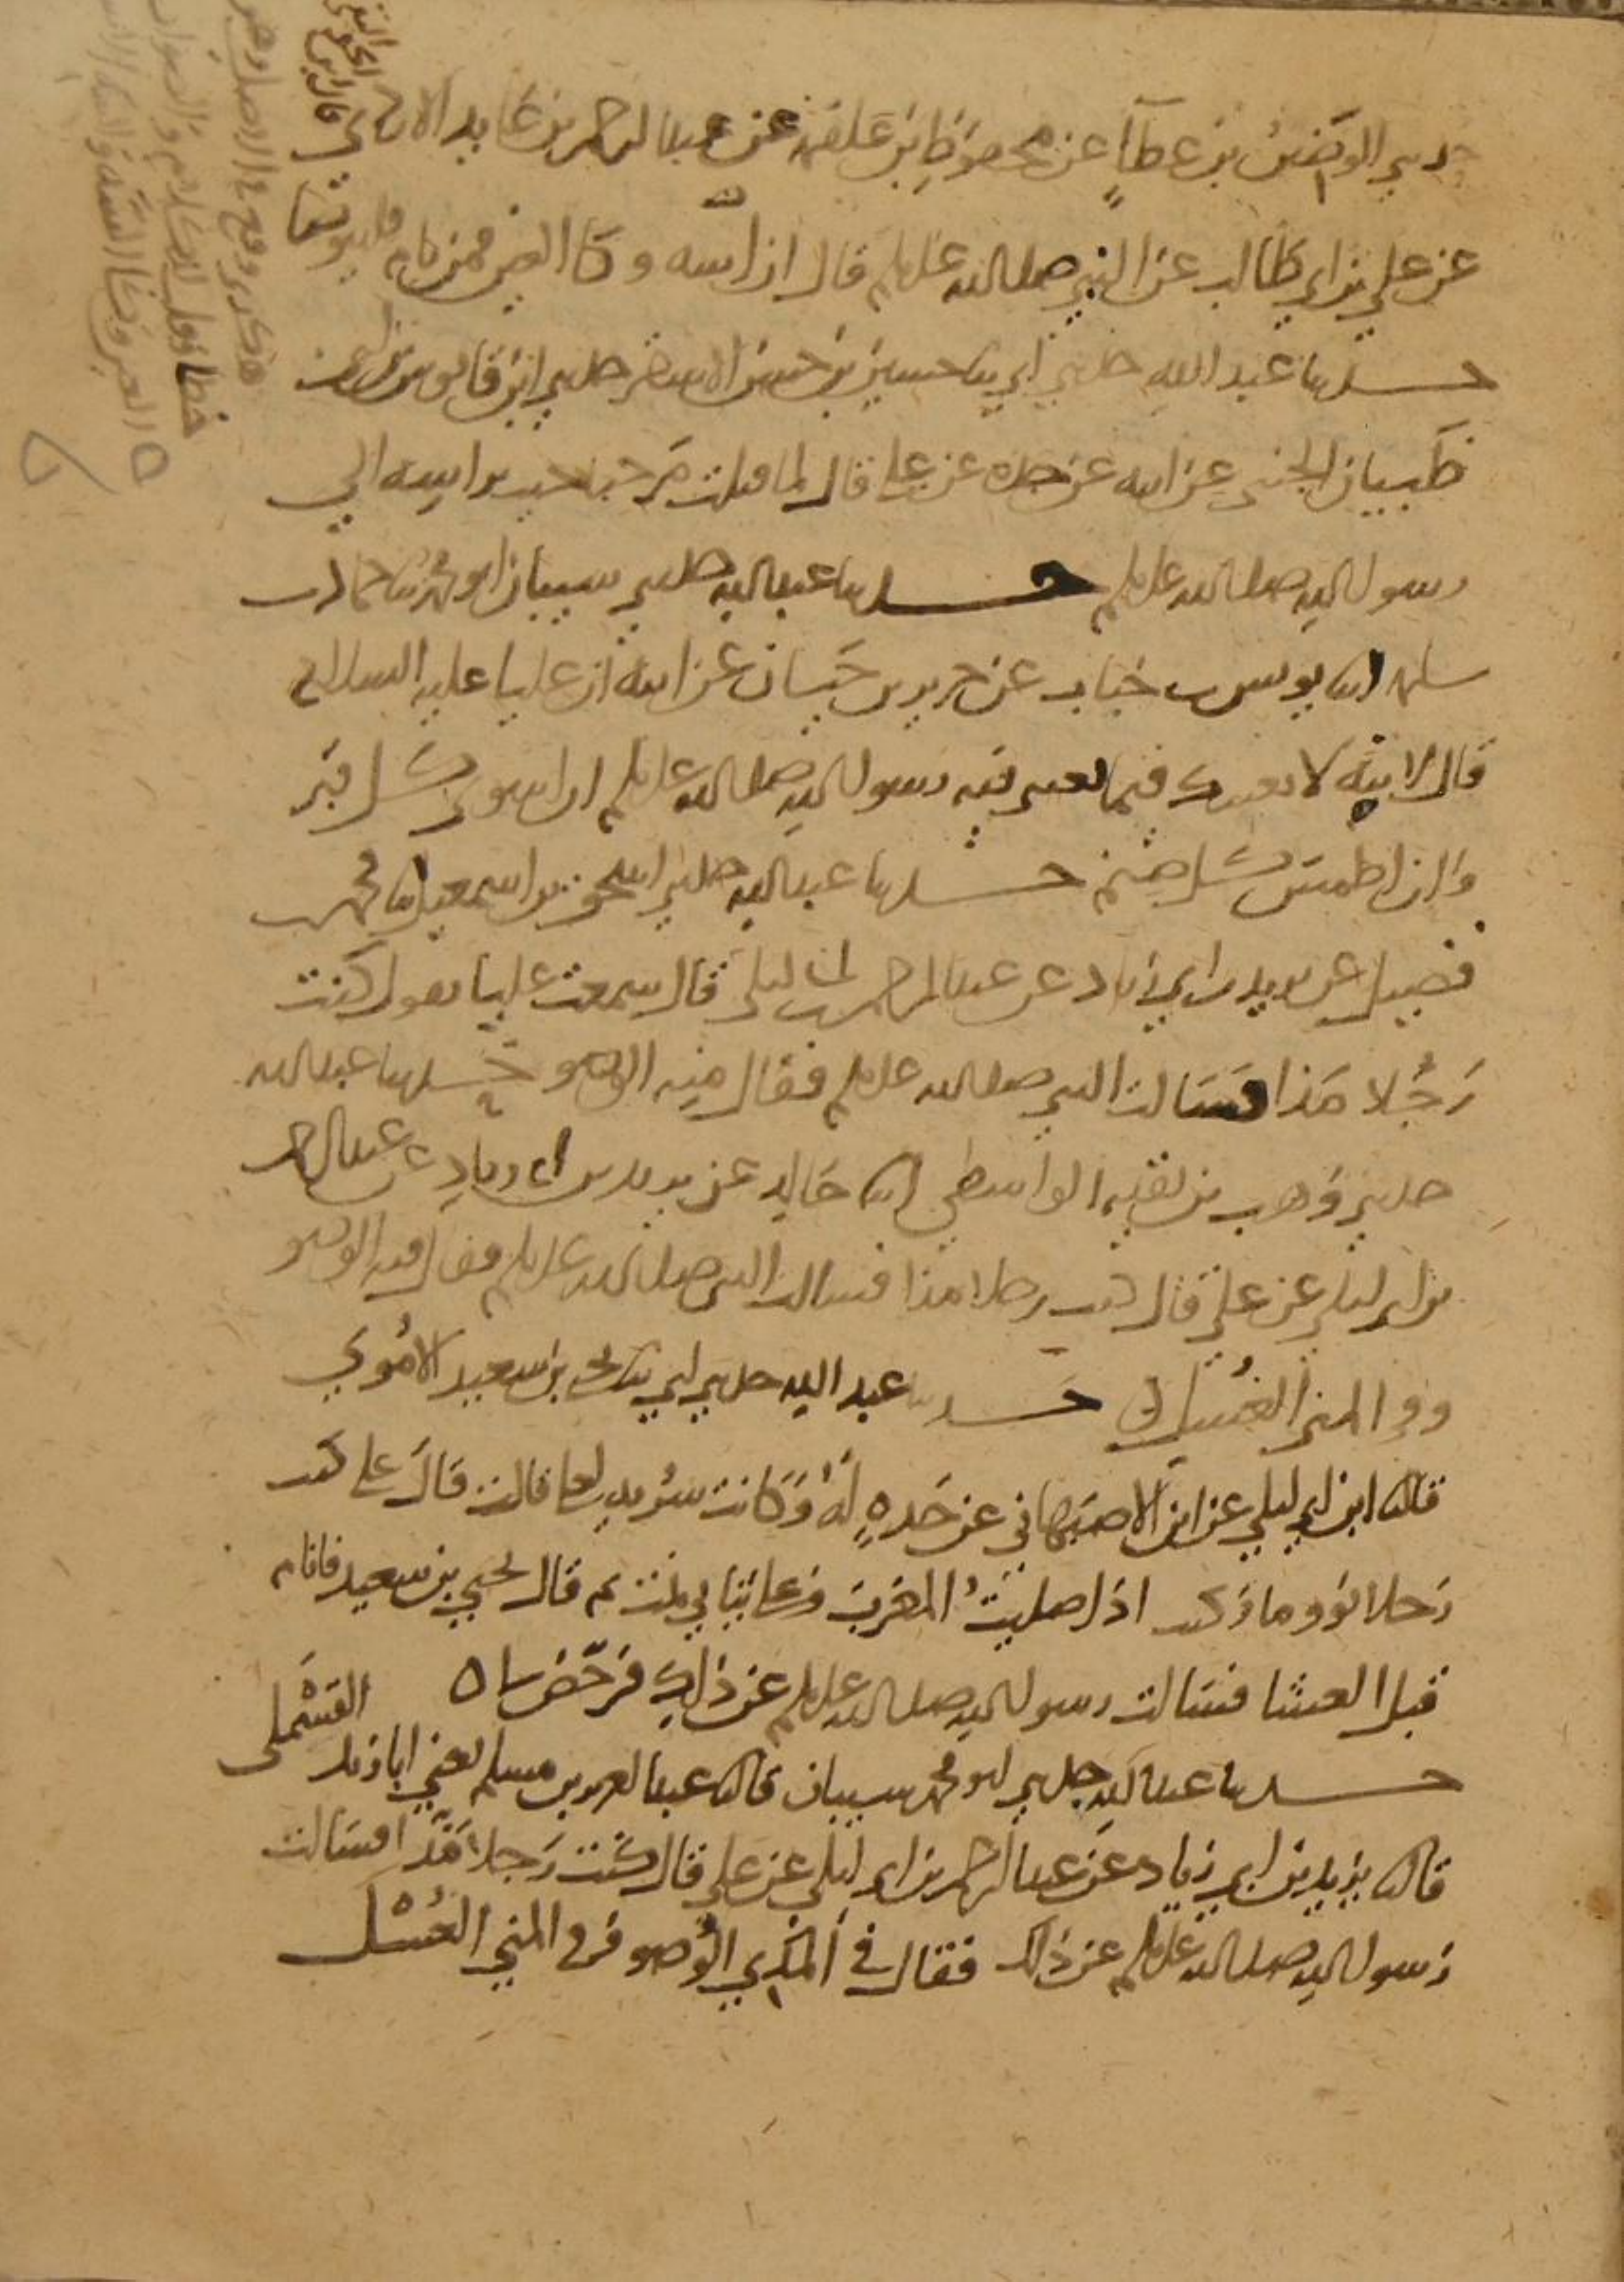 حدثني الوضين بن عطاء عن محفوظ بن علقمة عن عبد الرحمن بن عايد الازدي
عن علي بن ابي طالب عن النبي صلى الله عليه وسلم قال ان السه وكا العين فمن نام فليتوضا
حدثنا عبد الله حدثني ابي ثنا حسين بن حسن الاشقر حدثني ابن قابوس بن ابي
ظبيان الجنبي عن ابيه عن جده عن علي قال لما قتلت مرحبا جيت براسه الي
رسول الله صلى الله عليه وسلم حدثنا عبد الله حدثني شيبان ابو محمد ثنا حماد بن
سلمه انا يونس بن خباب عن جرير بن حيان عن ابيه ان عليا عليه السلام
قال لابيه لابعثنك فيما بعثني فيه رسول الله صلى الله عليه وسلم ان اسوي كل قبر
وان اطمس كل صنم حدثنا عبد الله حدثني اسحق بن اسمعيل ثنا محمد بن
فضيل عن يزيد بن ابي زياد عن عبد الرحمن بن ابي ليلى قال سمعت عليا يقول كنت
رجلا مذا فسالت النبي صلى الله عليه وسلم فقال فيه الوضو حدثنا عبد الله
حدثني وهب بن بقيه الواسطي انا خالد عن يزيد بن ابي زياد عن عبد الرحمن
بن ابي ليلى عن علي قال كنت رجلا مذا فسالت النبي صلى الله عليه وسلم فقال فيه الوضو
وفي المني الغسل حدثنا عبد الله حدثني ابي ثنا يحيى بن سعيد الاموي
قال ثنا ابن ابي ليلى عن ابن الاصبهاني عن جده له وكانت سريه لعلي قالت قال علي كنت
رجلا نوما وكنت اذا صليت المغرب وعلي ثيابي نمت ثم قال يحيى بن سعيد فانام
قبل العشا فسالت رسول الله صلى الله عليه وسلم عن ذلك فرخص لي ه
القسملي
حدثنا عبد الله حدثني ابو محمد شيبان قال ثنا عبد العزيز بن مسلم يعني ابا زيد
قال ثنا يزيد بن ابي زياد عن عبد الرحمن بن ابي ليلى عن علي قال كنت رجلا مذا فسالت
رسول الله صلى الله عليه وسلم عن ذلك فقال في المذي الوضو وفي المني الغسل